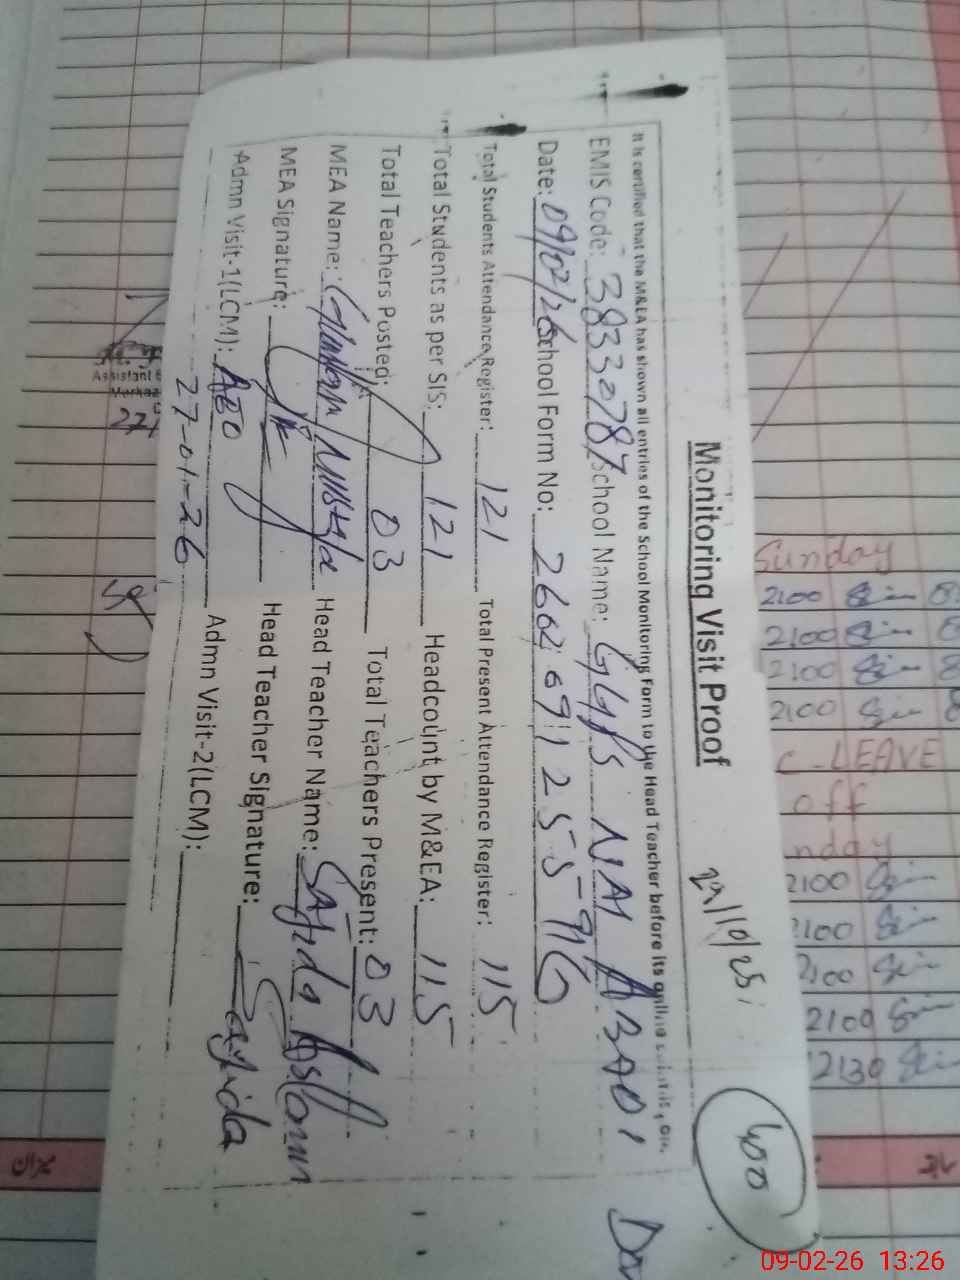 Monitoring Visit Proof
400
It is certified that the M&EA has shown all entries of the School Monitoring Form to the Head Teacher before its online
EMIS Code: 38330787 School Name: GGPS NAI ABADI
Date: 09/02/26 School Form No: 2602091255916
Total Students Attendance Register: 121 Total Present Attendance Register: 115
Total Students as per SIS: 121 Headcount by M&EA: 115
Total Teachers Posted: 03 Total Teachers Present: 03
MEA Name: Ghulam Mustafa Head Teacher Name: Sajida Aslam
MEA Signature: Head Teacher Signature: Sajida
Admn Visit-1(LCM): AEO Admn Visit-2(LCM):
27-01-26
Sunday
2100
2100
2100
2100
C-LEAVE
off
2100
2100
2100
2100
2130
Assistant
میزان
09-02-26 13:26